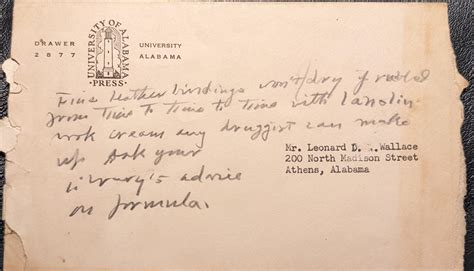 DRAWER
2877
UNIVERSITY OF ALABAMA
• PRESS •
UNIVERSITY
ALABAMA
Fine leather bindings won't dry if rubbed
from time to time to time with lanolin
book cream any druggist can make
up Ask your
library's advice
on formula.
Mr. Leonard D. Wallace
200 North Madison Street
Athens, Alabama